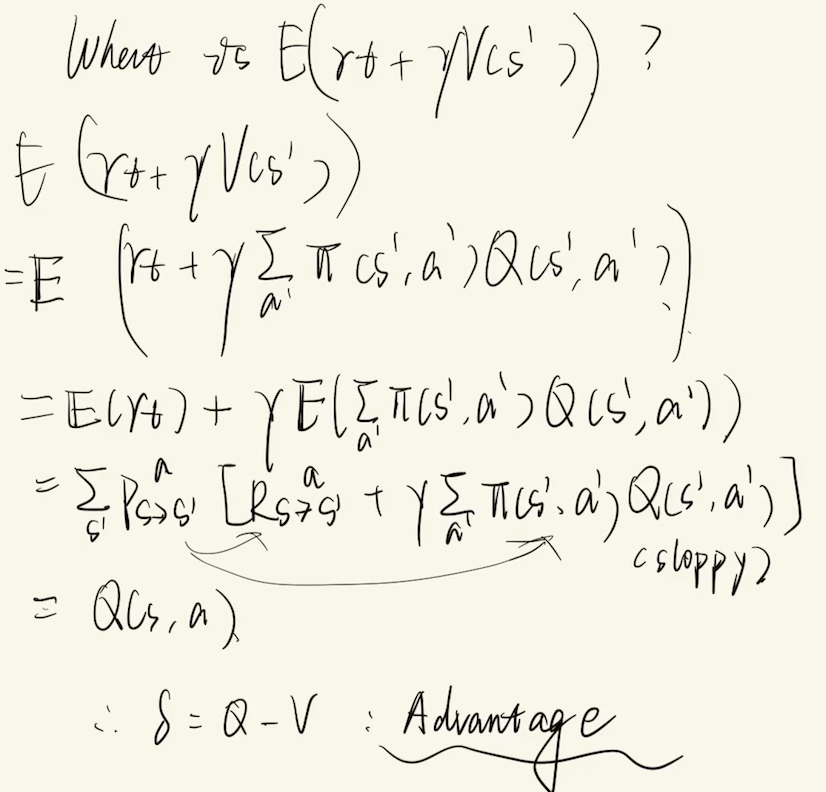 What is E(rt + γV(s')) ?
E (rt + γV(s'))
= E (rt + γ Σ_a' π(s', a') Q(s', a'))
= E(rt) + γ E(Σ_a' π(s', a') Q(s', a'))
= Σ_s' P^a_s→s' [R^a_s→s' + γ Σ_a' π(s', a') Q(s', a')]
(sloppy)
= Q(s, a)
∴ δ = Q - V : Advantage